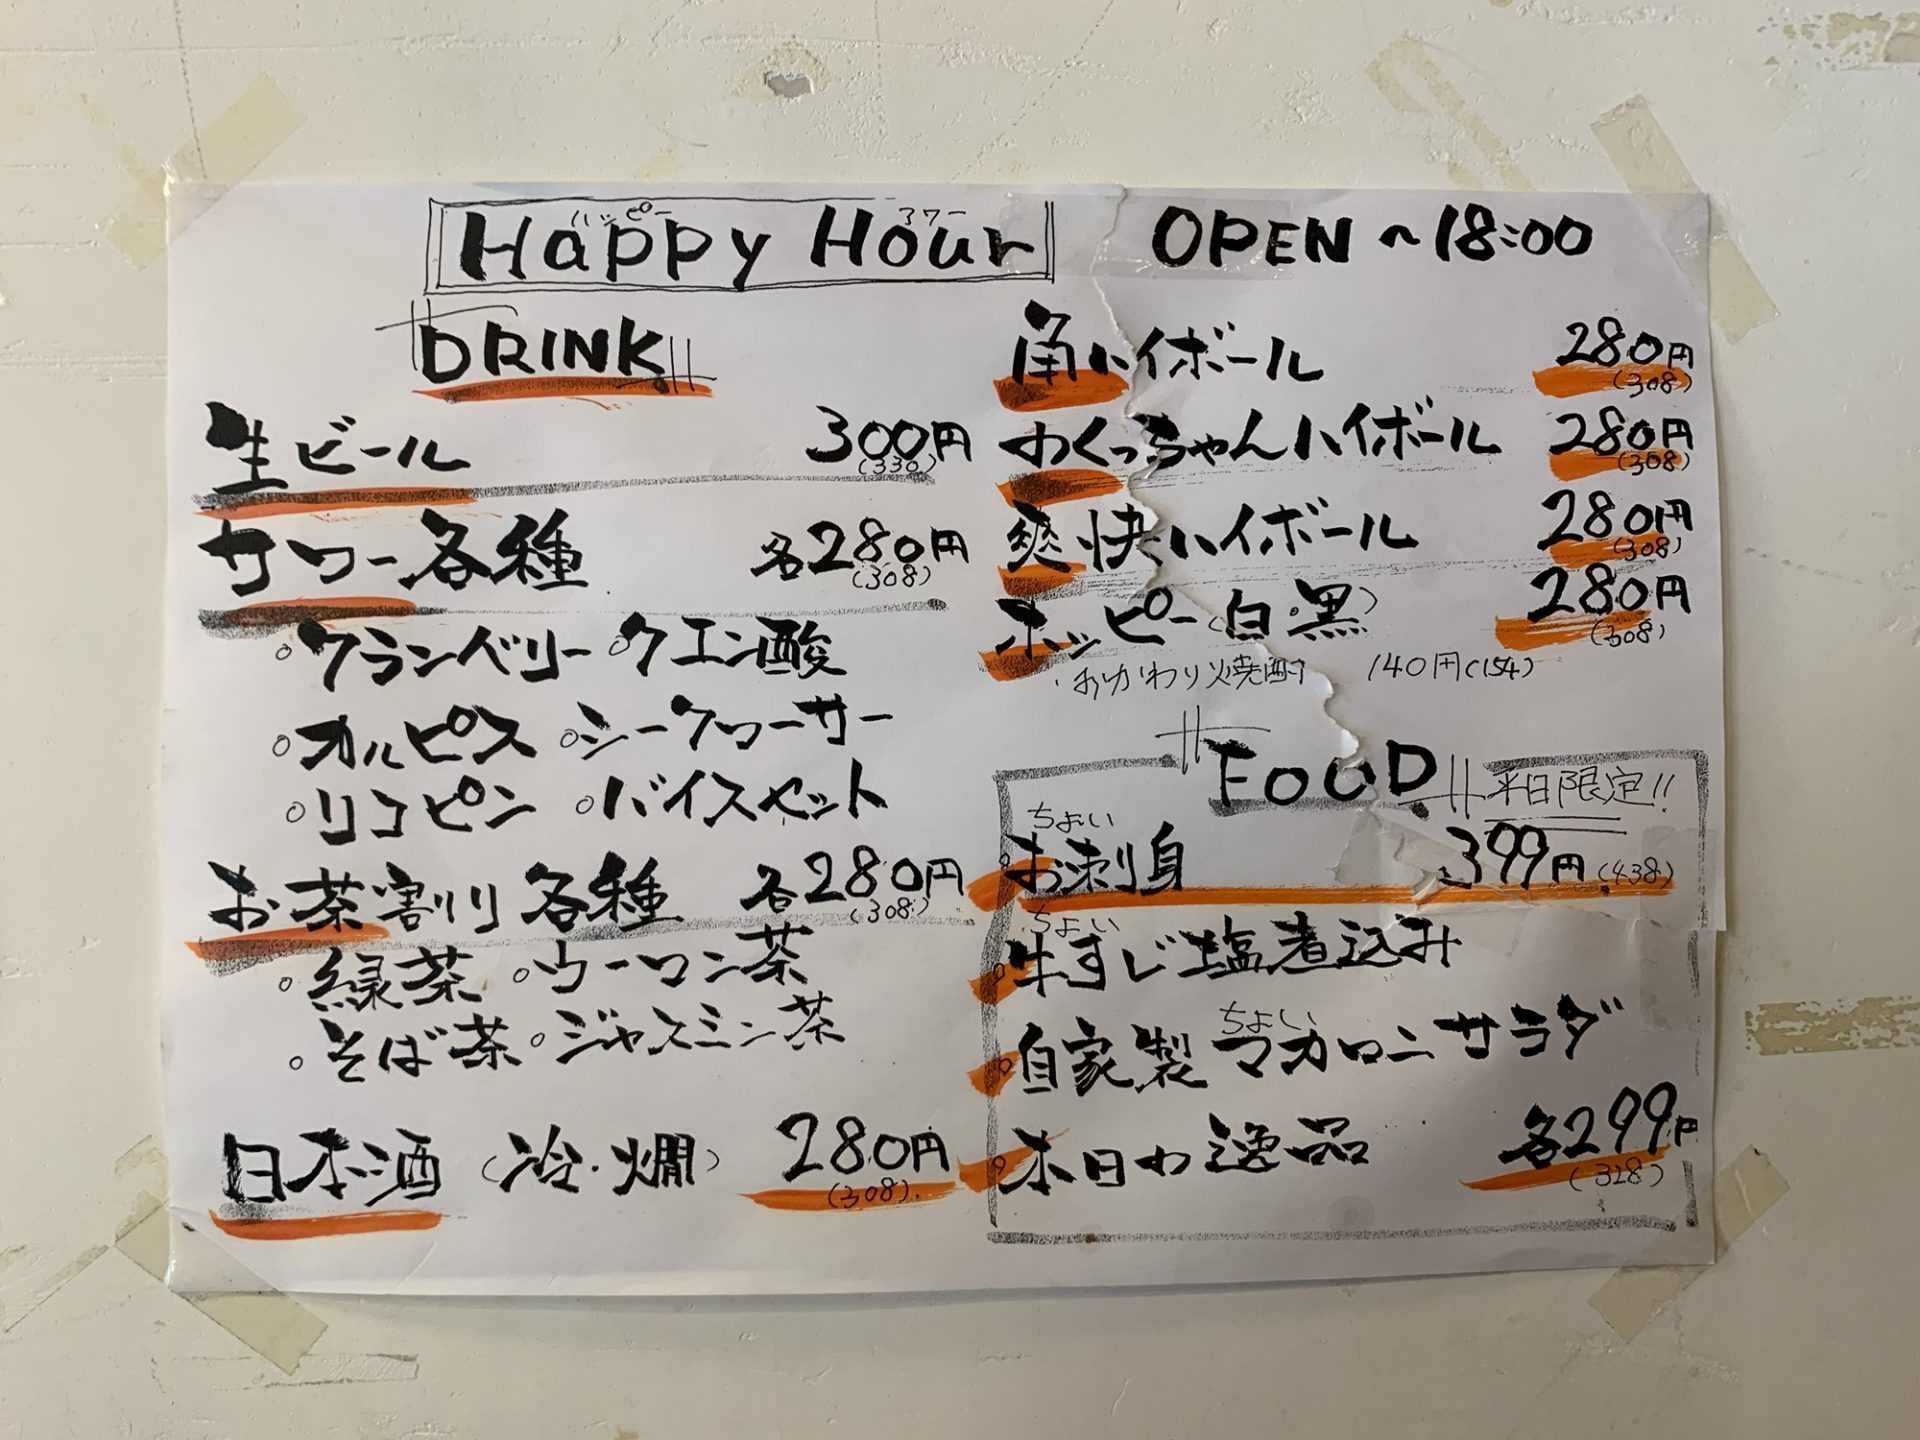 Happy Hour OPEN ～18:00
ハッピー アワー
DRINK
生ビール 300円
(330)
サワー各種 各280円
(308)
○クランベリー ○クエン酸
○カルピス ○シークワーサー
○リコピン ○バイスセット
お茶割り 各種 各280円
(308)
○緑茶 ○ウーロン茶
○そば茶 ○ジャスミン茶
日本酒 (冷・燗) 280円
(308)
角ハイボール 280円
(308)
わくっちゃんハイボール 280円
(308)
爽快ハイボール 280円
(308)
ホッピー(白・黒) 280円
(308)
・おかわり焼酎 140円(154)
FOOD 平日限定!!
ちょい
○お刺身 399円(438)
ちょい
○牛すじ塩煮込み
ちょい
○自家製マカロニサラダ
○本日の逸品 各299円
(328)